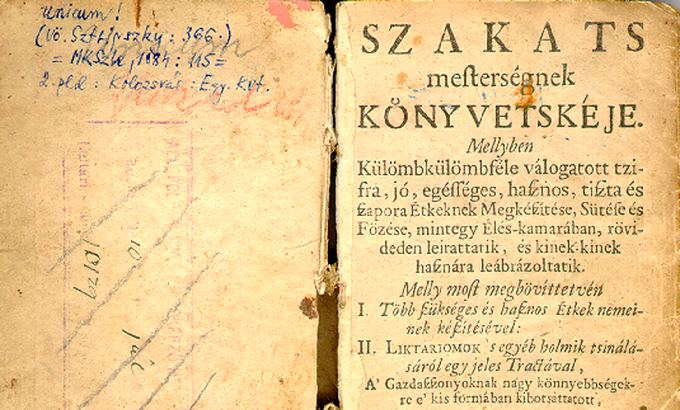 Unicum!
(vö. Sztripszky: 366.)
= MKSzle, 1984: 115 =
2. pld: Kolozsvár: Egy. Kvt.
10179
10
SZAKATS
mesterségnek
KÖNYVETSKÉJE.
Mellyben
Külömbkülömbféle válogatott tzi-
fra, jó, egésséges, hasznos, tiszta és
szapora Étkeknek Megkészitése, Sütése és
Fözése, mintegy Élés-kamarában, rövi-
dedèn leirattatik, és kinek-kinek
hasznára leábrázoltatik.
Melly most megbövittetvén
I. Több szükséges és hasznos Étkek nemei-
nek készitésével:
II. LIKTARIOMOK 's egyéb holmik tsinálá-
sáról egy jeles Tractával,
A' Gazdaszszonyoknak nagy könnyebbségek-
re e' kis formában kibotsáttatott,